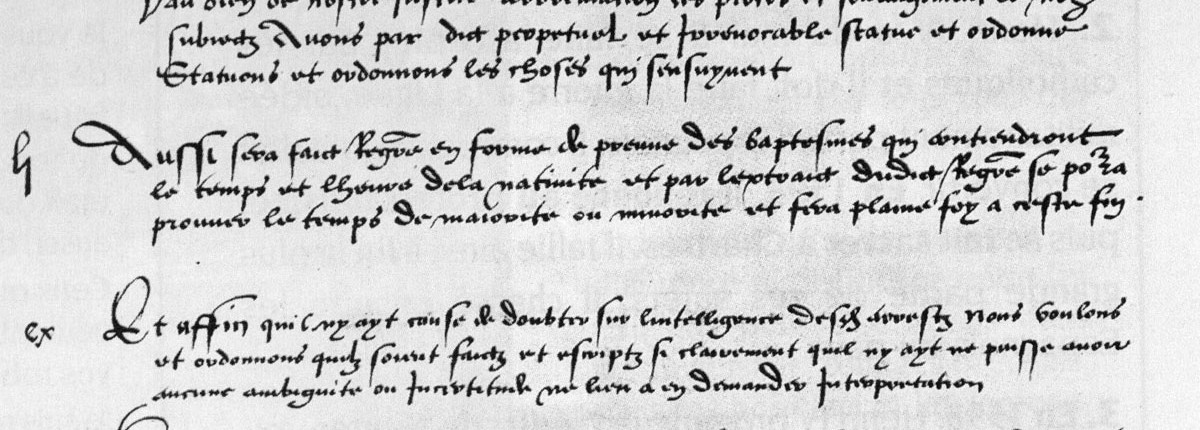 subiectz Avons par dict perpetuel et Irrevocable statue et ordonne
Statuons et ordonnons les choses qui sensuyvent
li Aussi sera faict Regre en forme de preuve des baptesmes qui contiendront
le temps et lheure dela nativite et par lextraict dudict Regre se porra
prouver le temps de maiorite ou minorite et fera plaine foy a ceste fin
cx Et affin quil ny ayt cause de doubter sur lintelligence desd arrestz Nous voulons
et ordonnons quilz soient faictz et escriptz si clairement quil ny ayt ne puisse avoir
aucune ambiguite ou Incertitude ne lieu a en demander Interpretation